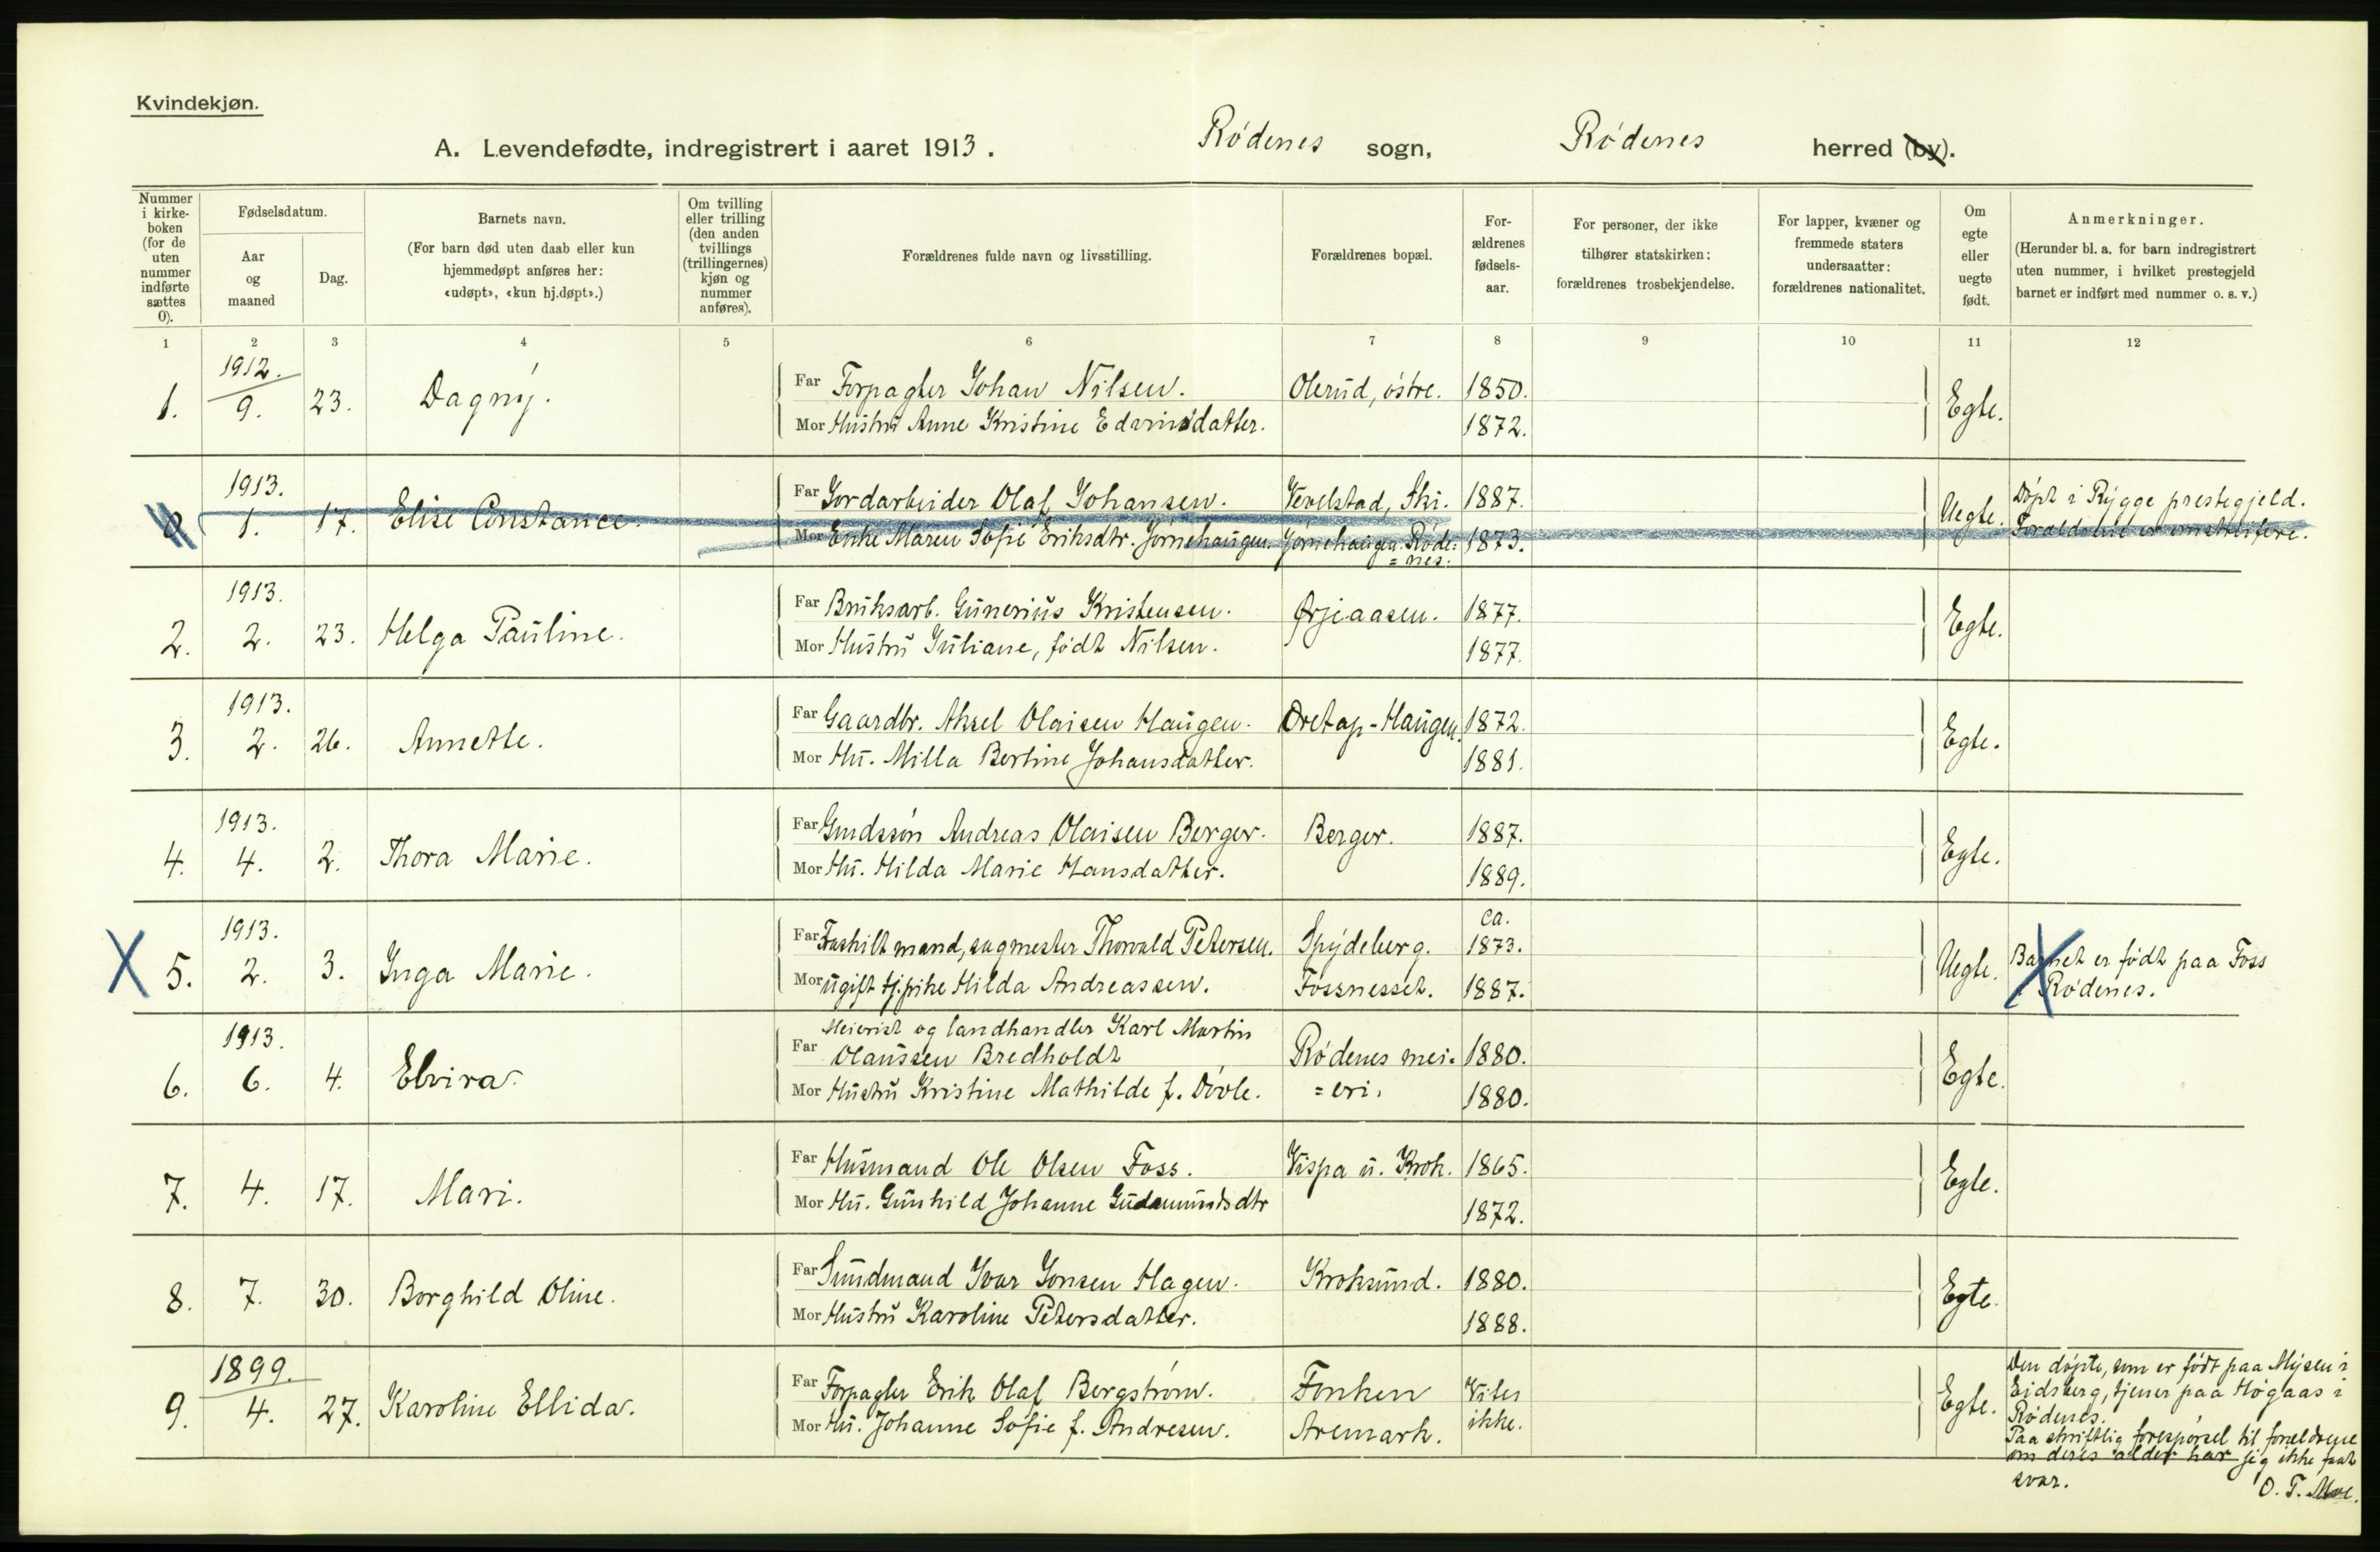 Kvindekjøn.
A. Levendefødte, indregistrert i aaret 1913. Rødenes sogn, Rødenes herred (by).
Nummer i kirke-boken (for de uten nummer indførte sættes 0).
Fødselsdatum.
Aar og maaned
Dag.
Barnets navn.
(For barn død uten daab eller kun hjemmedøpt anføres her: «udøpt», «kun hj.døpt».)
Om tvilling eller trilling (den anden tvillings (trillingernes) kjøn og nummer anføres).
Forældrenes fulde navn og livsstilling.
Forældrenes bopæl.
For-ældrenes fødsels-aar.
For personer, der ikke tilhører statskirken: forældrenes trosbekjendelse.
For lapper, kvæner og fremmede staters undersaatter: forældrenes nationalitet.
Om egte eller uegte født.
Anmerkninger.
(Herunder bl. a. for barn indregistrert uten nummer, i hvilket prestegjeld barnet er indført med nummer o. s. v.)
1 2 3 4 5 6 7 8 9 10 11 12
1912.
1. 9. 23. Dagny. Far Forpagter Johan Nilsen. Olerud, østre. 1850. Egte.
Mor Hustru Anne Kristine Edvinsdatter. 1872.
1913.
0 1. 17. Elise Constance. Far Jordarbeider Olaf Johansen. Vevelstad, Ski. 1887. Uegte. Døpt i Rygge prestegjeld.
Mor Enke Maren Sofie Eriksdtr. Jørnehaugen. Jørnehaugen. Røde= 1873. Forældrene er omstreifere.
=nes.
1913.
2. 2. 23. Helga Pauline. Far Bruksarb. Gunerius Kristensen. Ørjeaasen. 1877. Egte.
Mor Hustru Juliane, født Nilsen. 1877.
1913.
3. 2. 26. Annette. Far Gaardbr. Aksel Olaisen Haugen. Øretap-Haugen. 1872. Egte.
Mor Hu. Milla Bertine Johansdatter. 1881.
1913.
4. 4. 2. Thora Marie. Far Grndssøn Andreas Olaisen Berger. Berger. 1887. Egte.
Mor Hu. Hilda Marie Hansdatter. 1889.
1913. ca.
X 5. 2. 3. Inga Marie. Far Fraskilt mand, sagmester Thorvald Petersen. Spydeberg. 1873. Uegte. Barnet er født paa Foss
Mor ugift tj.pike Hilda Andreassen. Fossnesset. 1887. i Rødenes.
1913. Meierist og landhandler Karl Martin
6. 6. 4. Elvira. Far Olaussen Bredholdt Rødenes mei= 1880. Egte.
Mor Hustru Kristine Mathilde f. Døvle. =eri. 1880.
7. 4. 17. Mari. Far Husmand Ole Olsen Foss. Vispa u. Krok. 1865. Egte.
Mor Hu. Gunhild Johanne Gudmundsdtr 1872.
8. 7. 30. Borghild Oline. Far Sundmand Ivar Jonsen Hagen. Kroksund. 1880. Egte.
Mor Hustru Karoline Petersdatter. 1888.
1899.
9. 4. 27. Karoline Ellida. Far Forpagter Erik Olaf Bergstrøm. Fonken Vites Egte.
Mor Hu. Johanne Sofie f. Andresen. Aremark. ikke.
Den døpte, som er født paa Mysen i
Eidsberg, tjener paa Høgaas i
Rødenes.
Paa skriftlig forespørsel til foreldrene
om deres alder har jeg ikke faat
svar. O. T. Moe.